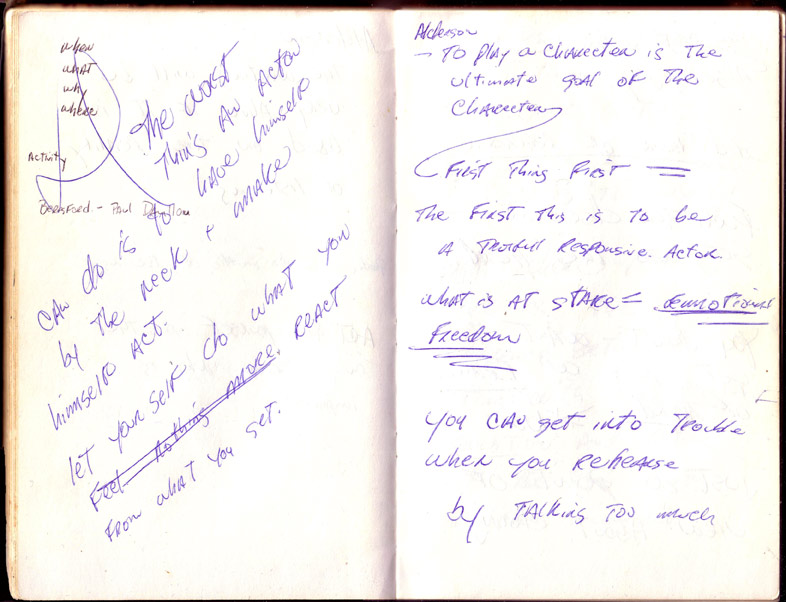 when
what
why
where
Activity
Beresford - Paul
The worst
thin's An Actor
CAN do is to have himself
by the neck + make
himself Act.
let your self do what you
Feel Nothing more. React
From what you get.
Alderson
- To play a Character is The
ultimate goal of The
Character
First Thing First =
The First This is to be
A Truthful Responsive. Actor.
What is AT STAKE = emotional
Freedom
You CAN get into Trouble
when you Rehearse
by TALKING Too much